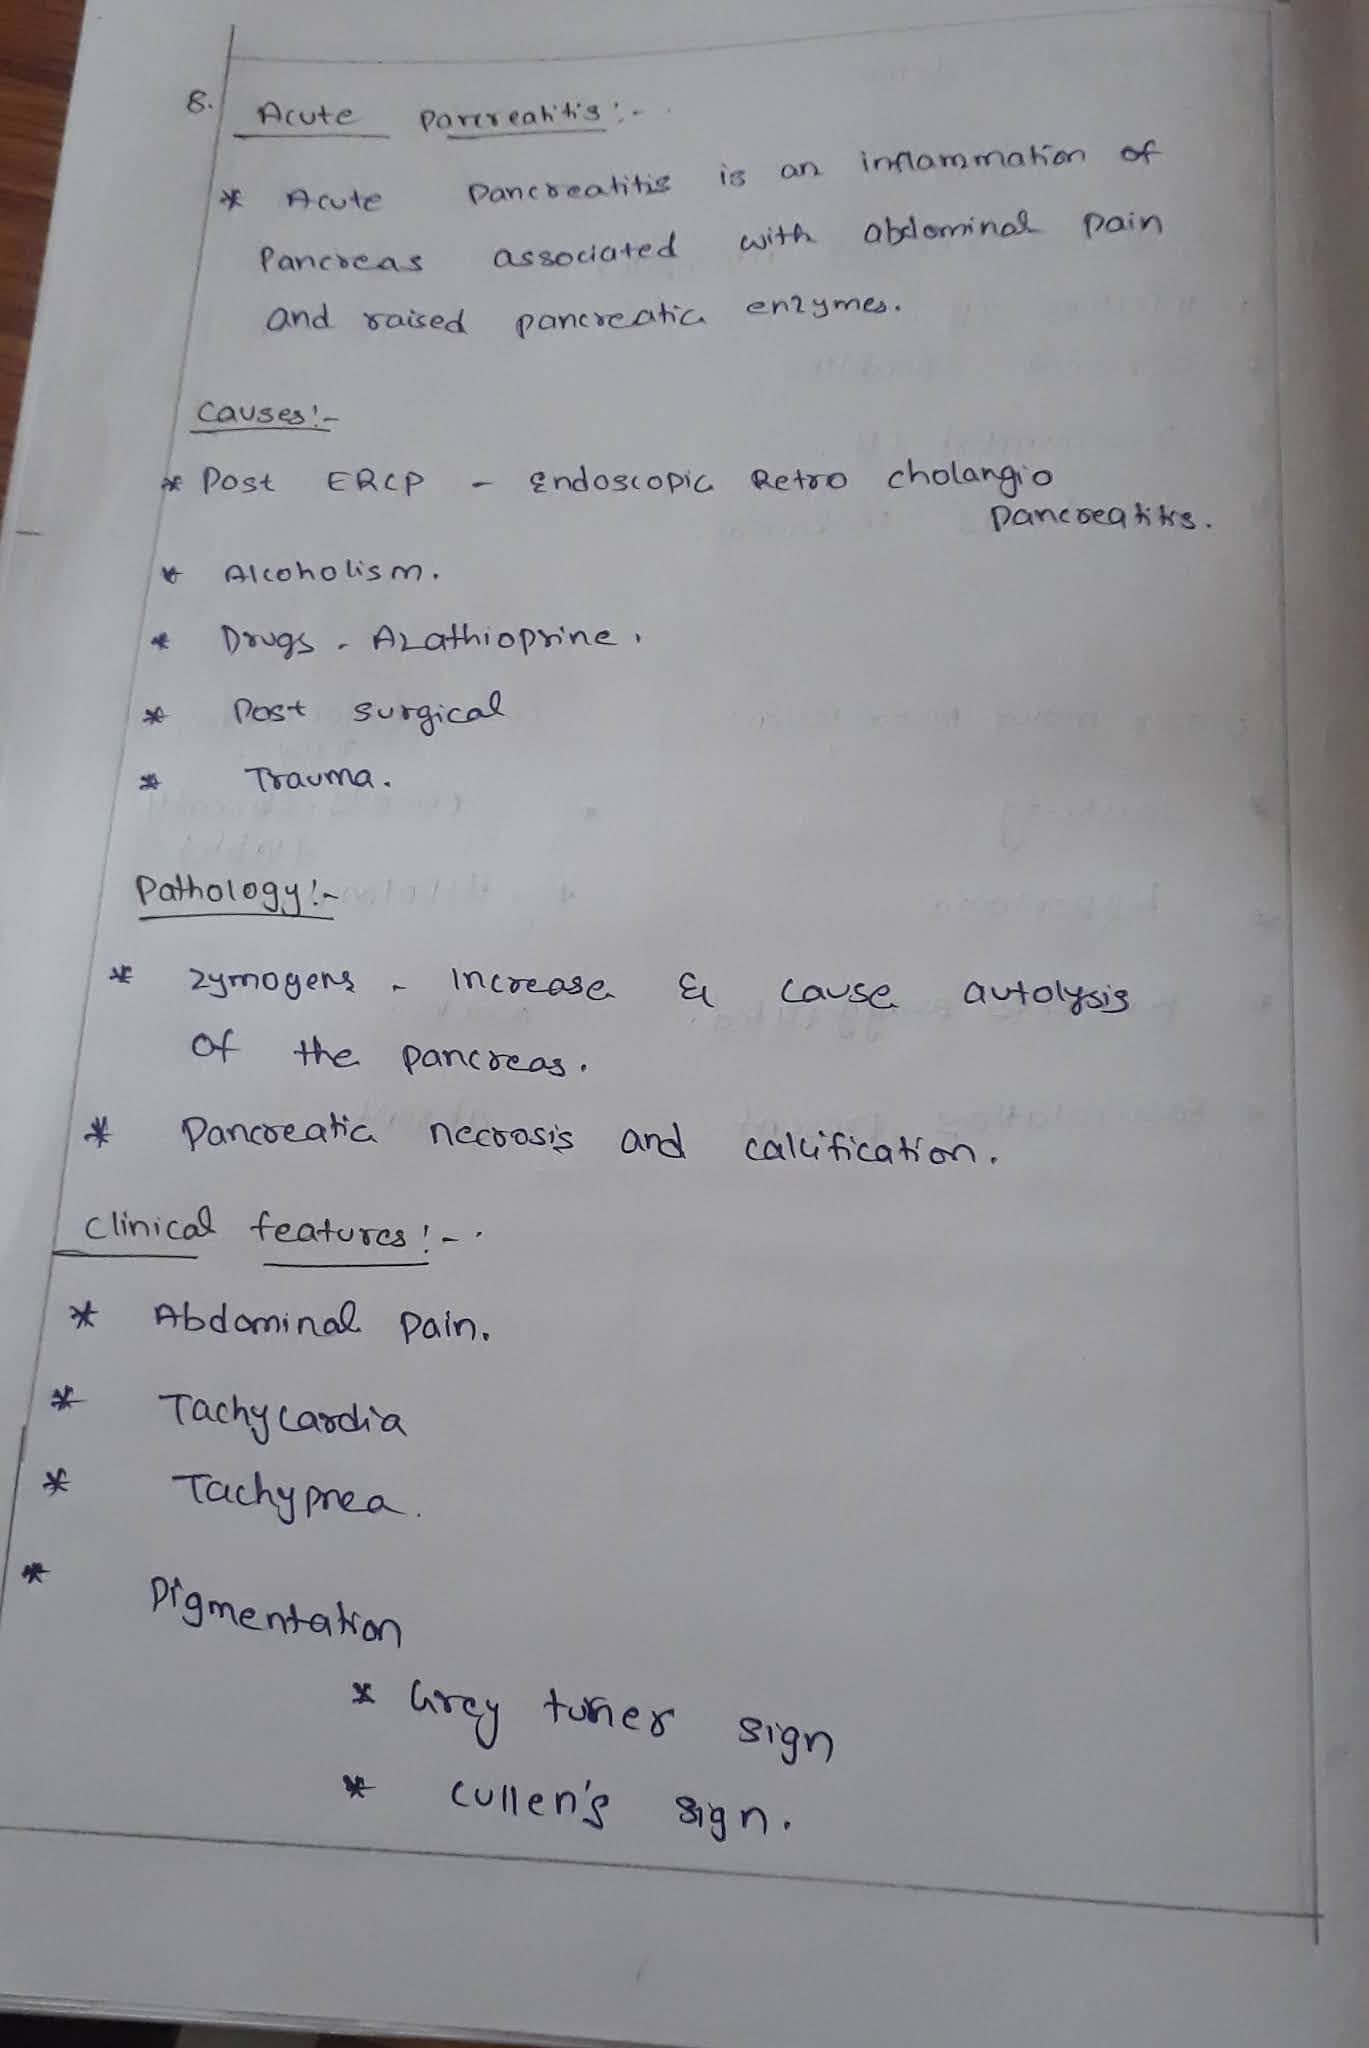 8. Acute Pancreatitis :-
* Acute Pancreatitis is an inflammation of
Pancreas associated with abdominal pain
and raised pancreatic enzymes.
Causes :-
* Post ERCP - Endoscopic Retro cholangio
Pancreatitis.
* Alcoholism.
* Drugs - Azathioprine.
* Post surgical
* Trauma.
Pathology :-
* Zymogens - Increase & cause autolysis
of the pancreas.
* Pancreatic necrosis and calcification.
Clinical features :-
* Abdominal Pain.
* Tachycardia
* Tachypnea.
* Pigmentation
* Grey turner sign
* Cullen's sign.